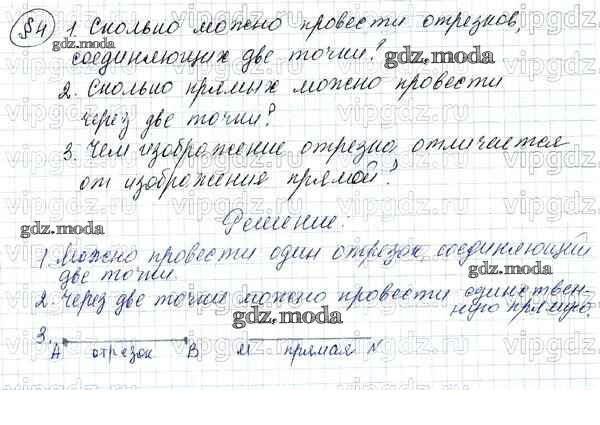 §4 1. Сколько можно провести отрезков,
соединяющих две точки?
gdz.moda
2. Сколько прямых можно провести
через две точки?
3. Чем изображение отрезка отличается
от изображения прямой?
gdz.moda
gdz.moda
Решение:
1. Можно провести один отрезок, соединяющий
две точки.
gdz.moda
2. Через две точки можно провести единствен-
ную прямую.
gdz.moda
3.
A отрезок B M прямая N
vipgdz.ru